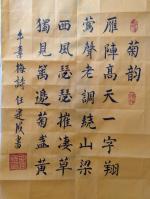 菊韵
雁陣高天一字翔
鶯聲老調繞山梁
西風瑟瑟摧凄草
獨見篱邊菊盏黄
章梅詩 任建成書